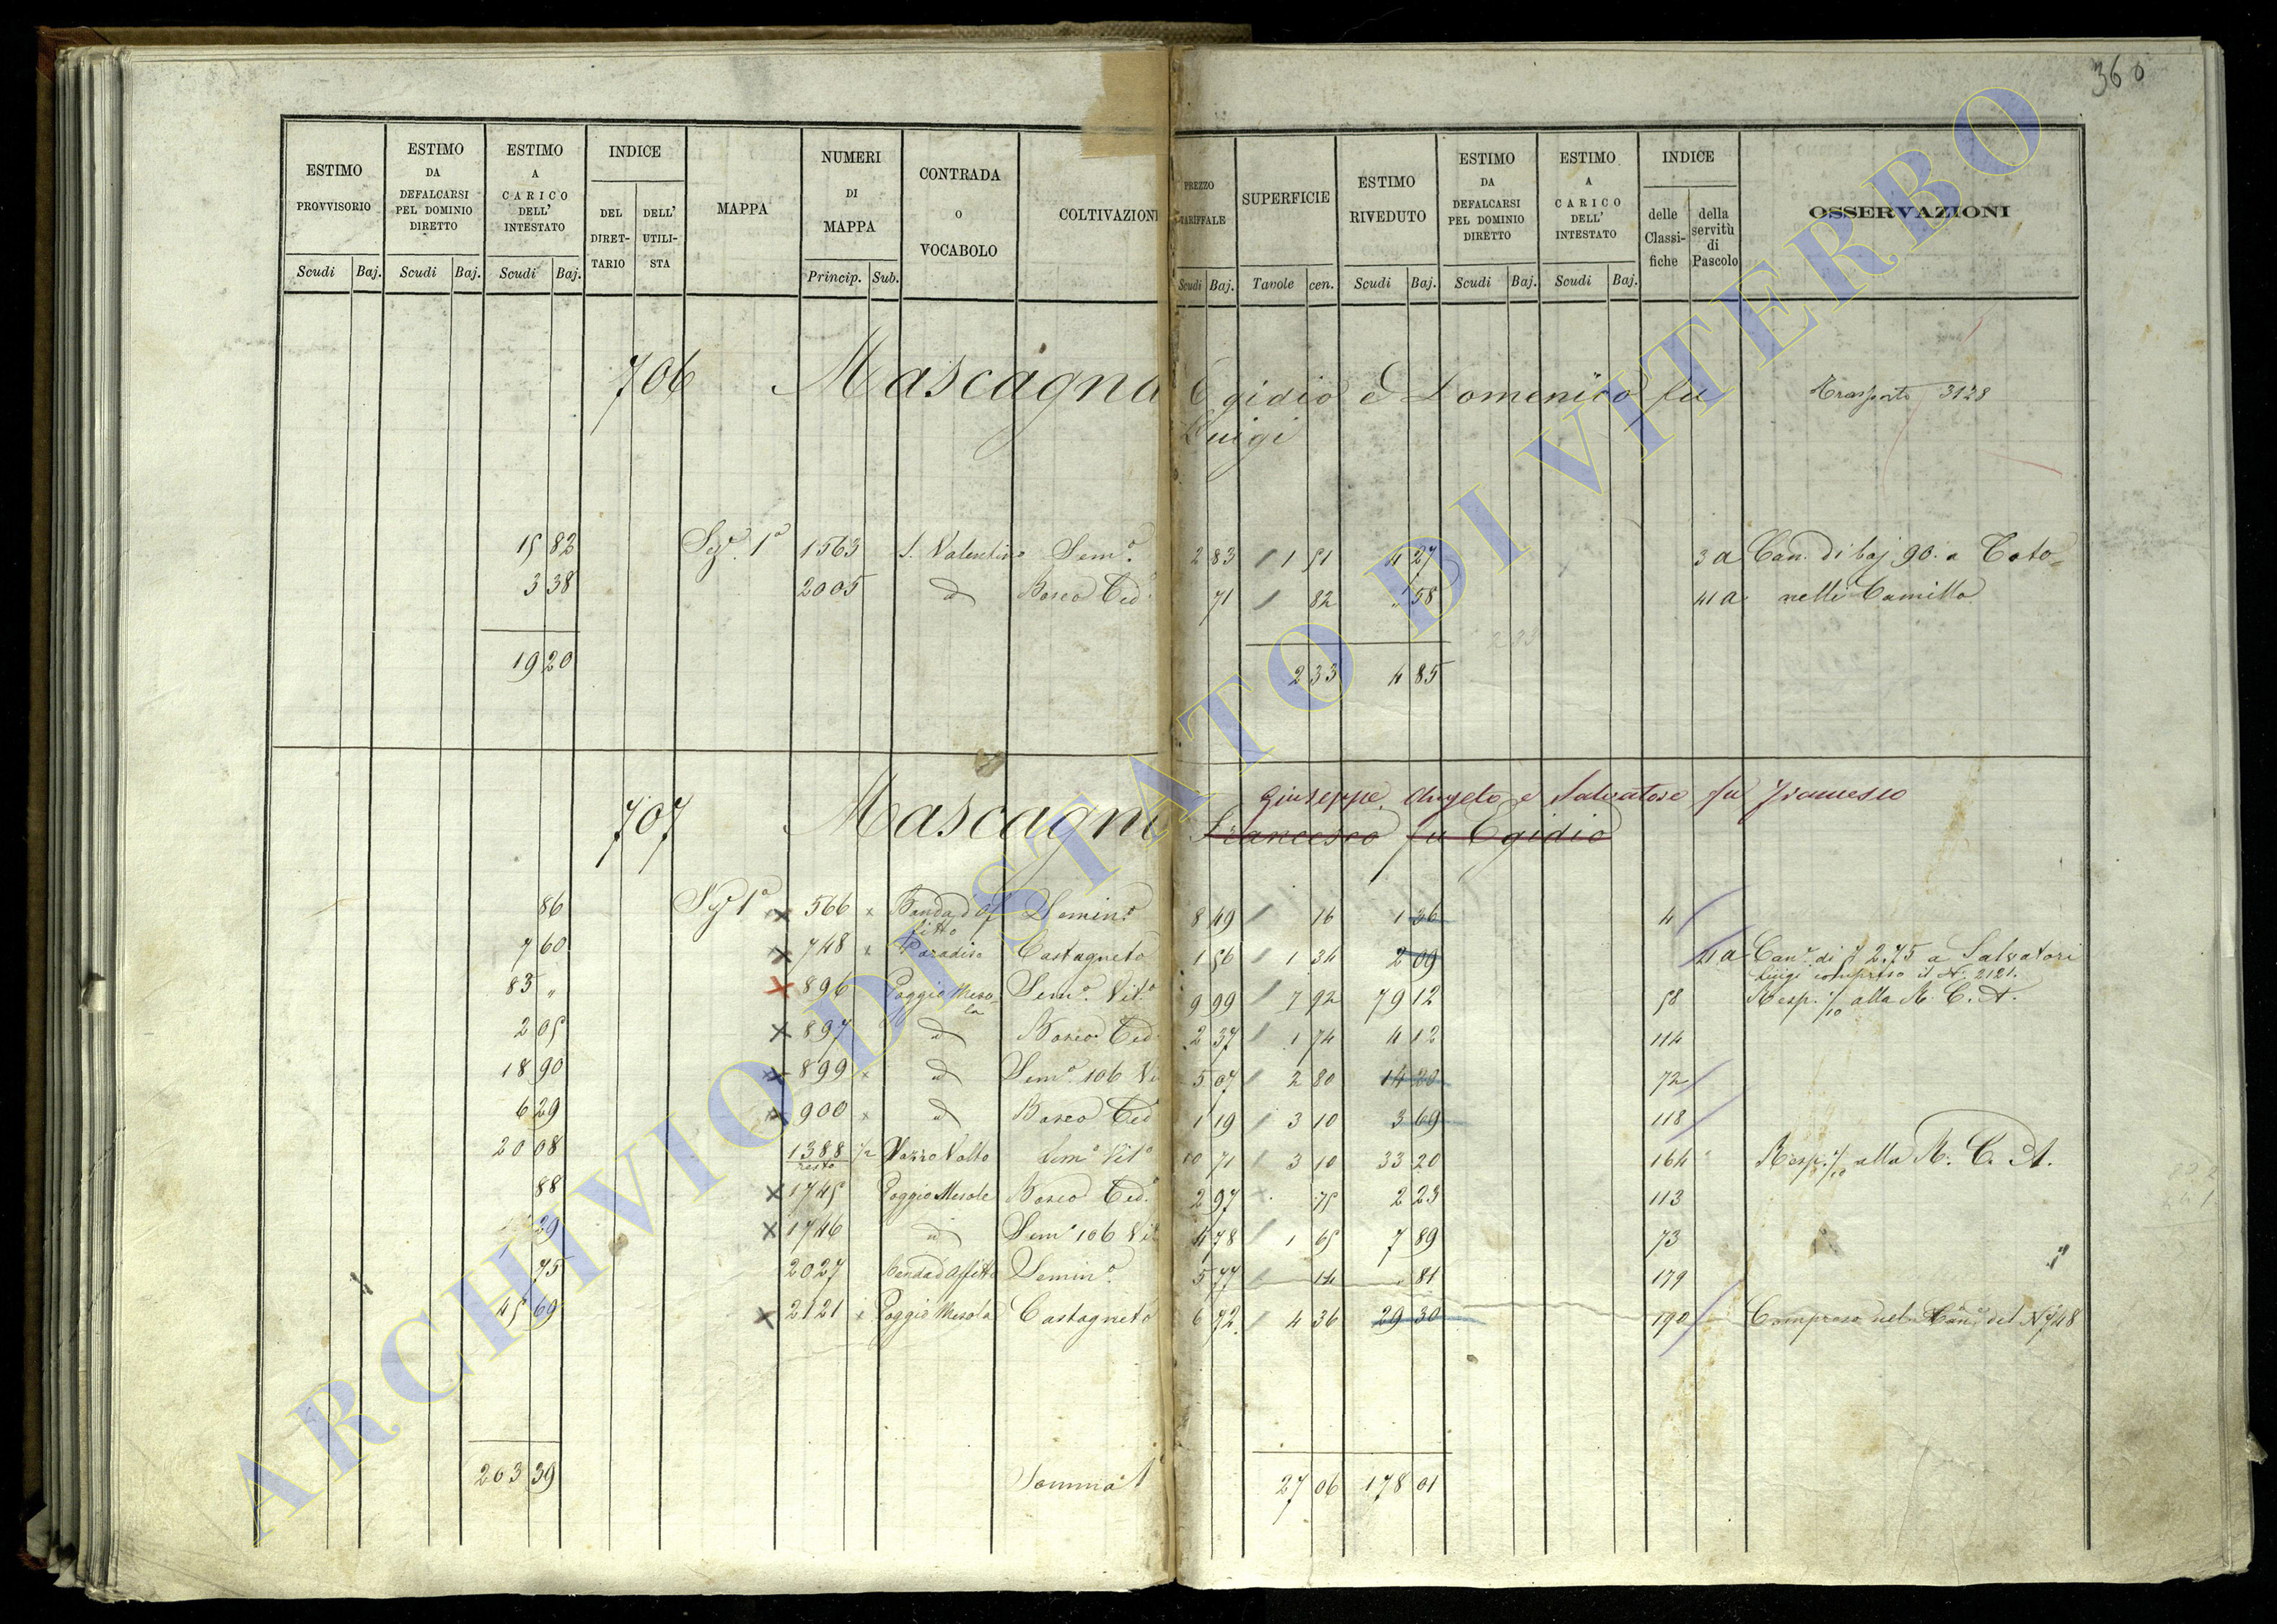 360
ESTIMO PROVVISORIO | ESTIMO DA DEFALCARSI PEL DOMINIO DIRETTO | ESTIMO A CARICO DELL' INTESTATO | INDICE | MAPPA | NUMERI DI MAPPA | CONTRADA O VOCABOLO | COLTIVAZION | PREZZO TARIFFALE | SUPERFICIE | ESTIMO RIVEDUTO | ESTIMO DA DEFALCARSI PEL DOMINIO DIRETTO | ESTIMO A CARICO DELL' INTESTATO | INDICE | OSSERVAZIONI
DEL DIRETTARIO | DELL' UTILISTA | delle Classifiche | della servitù di Pascolo
Scudi | Baj. | Scudi | Baj. | Scudi | Baj. | Princip. | Sub. | Scudi | Baj. | Tavole | cen. | Scudi | Baj. | Scudi | Baj. | Scudi | Baj.
706 Mascagna Egidio e Domenico fu Trasporto 3128
Luigi
15 82 Sez. 1a 1563 S. Valentino Sem.o 2 83 1 51 4 27 3 a Can. di baj 90. a Coto=
3 38 2005 d Bosco Ced. 71 82 " 58 41 a nelli Camillo
19 20 2 33 4 85
Giuseppe, Angelo e Salvatore fu Francesco
707 Mascagni Francesco fu Egidio
86 Sez. 1a 566 Banda d'Affitto Semin.o 8 49 16 1 36 4
7 60 748 Paradiso Castagneto 1 56 1 34 2 09 41 a Can. di 2.75 a Salvatori
Luigi compreso il N. 2121.
83 " 896 Poggio Mesola Sem.o Vit.o 9 99 7 92 79 12 58 Resp. 1/10 alla R. C. A.
2 05 897 d Bosco Ced. 2 37 1 74 4 12 114
18 90 899 d Sem.o 106 Vi 5 07 2 80 14 20 72
6 29 900 d Bosco Ced 1 19 3 10 3 69 118
20 08 1388 resto Sem.o Vit.o 10 71 3 10 33 20 164 Resp. 1/10 alla R. C. A.
88 1745 Poggio Mesole Bosco Ced. 2 97 75 2 23 113
29 1746 d Sem. 106 Vit 4 78 1 65 7 89 73
75 2027 Banda d'Affitto Semin.o 5 77 14 " 81 179
45 69 2121 Poggio Mesola Castagneto 6 72 4 36 29 30 190 Compreso nel Can. del N 748
203 39 Somma 27 06 178 01
ARCHIVIO DI STATO DI VITERBO